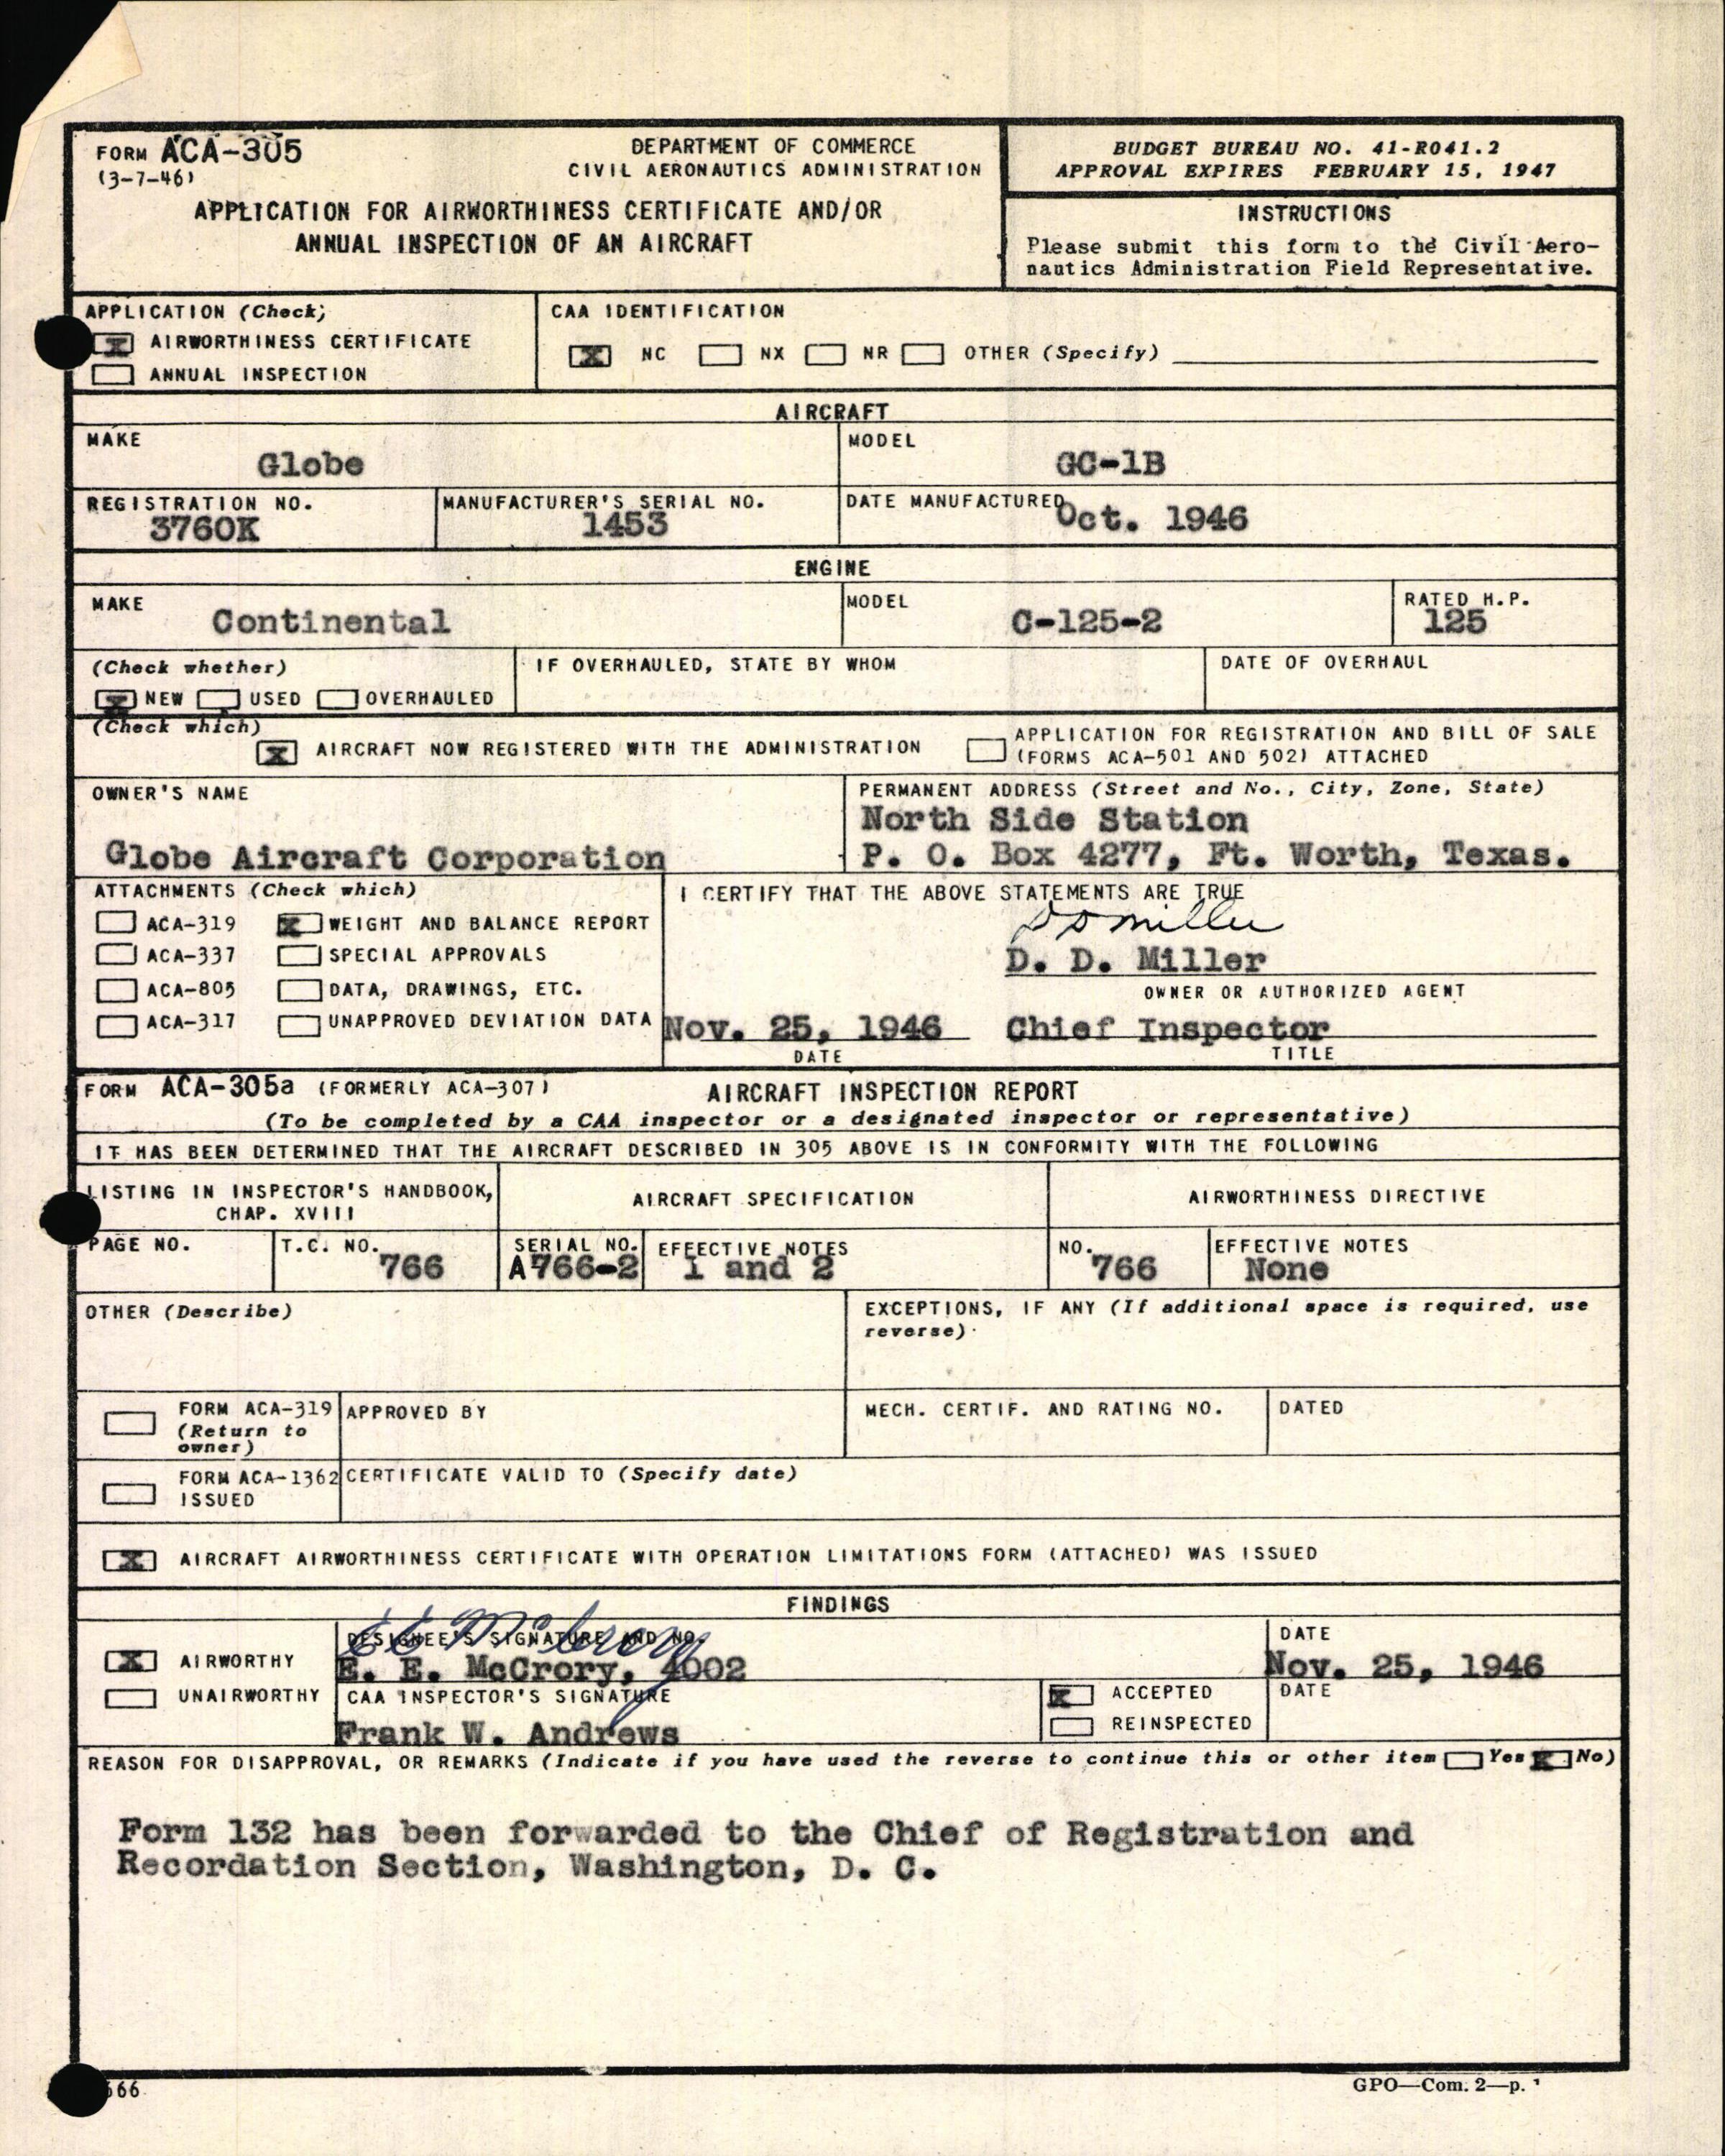 FORM ACA-305
(3-7-46)
DEPARTMENT OF COMMERCE
CIVIL AERONAUTICS ADMINISTRATION
APPLICATION FOR AIRWORTHINESS CERTIFICATE AND/OR
ANNUAL INSPECTION OF AN AIRCRAFT
BUDGET BUREAU NO. 41-R041.2
APPROVAL EXPIRES FEBRUARY 15, 1947
INSTRUCTIONS
Please submit this form to the Civil Aero-
nautics Administration Field Representative.
APPLICATION (Check)
X AIRWORTHINESS CERTIFICATE
ANNUAL INSPECTION
CAA IDENTIFICATION
X NC NX NR OTHER (Specify)
AIRCRAFT
MAKE
Globe
MODEL
GC-1B
REGISTRATION NO.
3760K
MANUFACTURER'S SERIAL NO.
1453
DATE MANUFACTURED
Oct. 1946
ENGINE
MAKE
Continental
MODEL
C-125-2
RATED H.P.
125
(Check whether)
X NEW USED OVERHAULED
IF OVERHAULED, STATE BY WHOM
DATE OF OVERHAUL
(Check which)
X AIRCRAFT NOW REGISTERED WITH THE ADMINISTRATION
APPLICATION FOR REGISTRATION AND BILL OF SALE
(FORMS ACA-501 AND 502) ATTACHED
OWNER'S NAME
Globe Aircraft Corporation
PERMANENT ADDRESS (Street and No., City, Zone, State)
North Side Station
P. O. Box 4277, Ft. Worth, Texas.
ATTACHMENTS (Check which)
ACA-319 X WEIGHT AND BALANCE REPORT
ACA-337 SPECIAL APPROVALS
ACA-805 DATA, DRAWINGS, ETC.
ACA-317 UNAPPROVED DEVIATION DATA
I CERTIFY THAT THE ABOVE STATEMENTS ARE TRUE
D D Miller
D. D. Miller
OWNER OR AUTHORIZED AGENT
Nov. 25, 1946 Chief Inspector
DATE TITLE
FORM ACA-305a (FORMERLY ACA-307) AIRCRAFT INSPECTION REPORT
(To be completed by a CAA inspector or a designated inspector or representative)
IT HAS BEEN DETERMINED THAT THE AIRCRAFT DESCRIBED IN 305 ABOVE IS IN CONFORMITY WITH THE FOLLOWING
LISTING IN INSPECTOR'S HANDBOOK,
CHAP. XVIII
AIRCRAFT SPECIFICATION
AIRWORTHINESS DIRECTIVE
PAGE NO.
T.C. NO.
766
SERIAL NO.
A766-2
EFFECTIVE NOTES
1 and 2
NO.
766
EFFECTIVE NOTES
None
OTHER (Describe)
EXCEPTIONS, IF ANY (If additional space is required, use
reverse)
FORM ACA-319
(Return to
owner)
APPROVED BY
MECH. CERTIF. AND RATING NO.
DATED
FORM ACA-1362
ISSUED
CERTIFICATE VALID TO (Specify date)
X AIRCRAFT AIRWORTHINESS CERTIFICATE WITH OPERATION LIMITATIONS FORM (ATTACHED) WAS ISSUED
FINDINGS
X AIRWORTHY
UNAIRWORTHY
DESIGNEE'S SIGNATURE AND NO.
E E McCrory
E. E. McCrory, 4002
DATE
Nov. 25, 1946
CAA INSPECTOR'S SIGNATURE
Frank W. Andrews
X ACCEPTED
REINSPECTED
DATE
REASON FOR DISAPPROVAL, OR REMARKS (Indicate if you have used the reverse to continue this or other item Yes X No)
Form 132 has been forwarded to the Chief of Registration and
Recordation Section, Washington, D. C.
66
GPO—Com. 2—p.